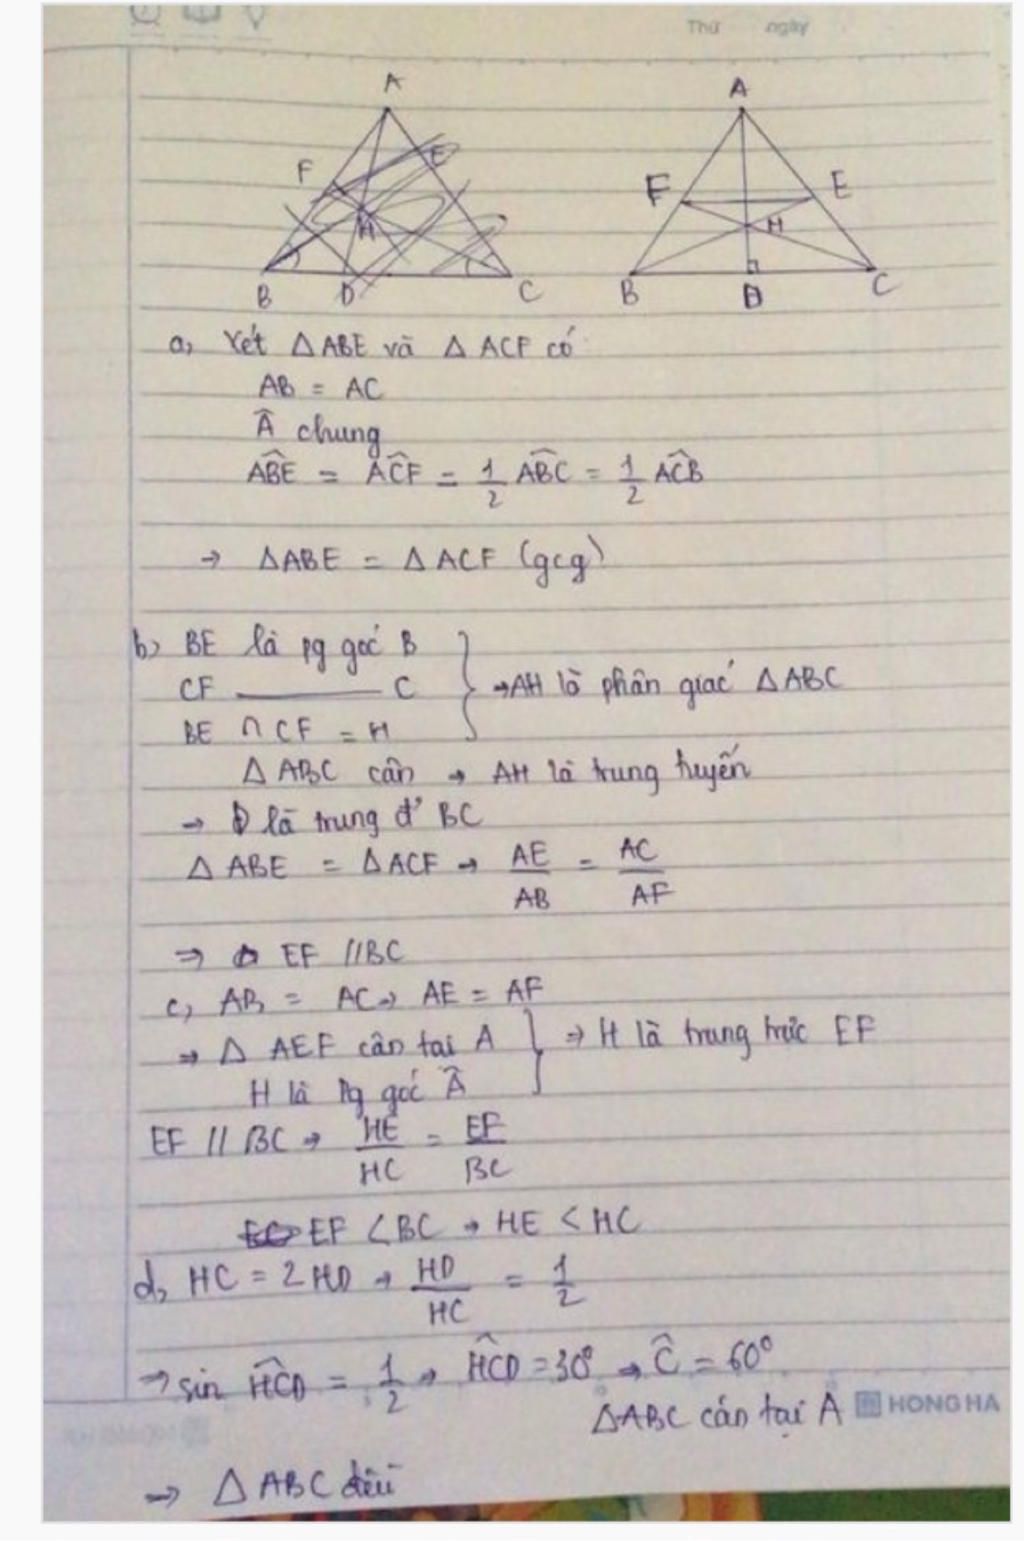 Thứ ngày
A
F E
H
B D C
A
F E
H
B D C
a, Xét △ABE và △ ACF có
AB = AC
Â chung
ABE^ = ACF^ = 1/2 ABC^ = 1/2 ACB^
→ △ABE = △ ACF (gcg)
b, BE là pg góc B
CF ——— C
BE ∩ CF = H
} → AH là phân giác △ABC
△ ABC cân → AH là trung tuyến
→ D là trung đ' BC
△ ABE = △ACF → AE/AB = AC/AF
⇒ EF //BC
c, AB = AC → AE = AF
⇒ △ AEF cân tại A
H là pg góc Â
} ⇒ H là trung trực EF
EF // BC → HE/HC = EF/BC
EF < BC → HE < HC
d, HC = 2HD → HD/HC = 1/2
⇒ sin HCD^ = 1/2 → HCD^ = 30° → C^ = 60°
△ABC cân tại A
HONG HA
→ △ ABC đều